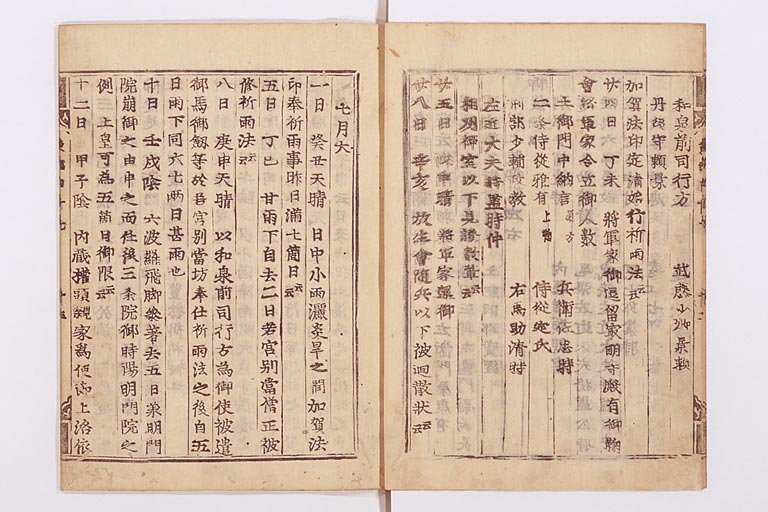 和泉前司行方　武藤少卿景頼
丹後守頼景
加賀法印定清始行祈雨法云云
廿四日　丁未　将軍家御逗留家明寺殿有御鞠
会将軍家令立御人数
土御門中納言顕方　兵衛佐忠時
二条侍従雅有上鞠　侍従定氏
刑部少輔政教　右馬助清時
左近大夫将監時仲
廿五日　晴　将軍家還御
廿八日　辛亥　放生会随兵以下被廻散状云云
七月大
一日　癸丑天晴　日中小雨灑炎旱之間加賀法
印奉祈雨事昨日満七箇日云云
五日　丁巳　甘雨下自去二日若宮別当僧正被
修祈雨法云云
八日　庚申天晴　以和泉前司行方為御使被遣
御馬御剱等於若宮別当坊奉仕祈雨法之後自五
日雨下同六七両日甚雨也
十日　壬戌陰　六波羅飛脚参著去五日兼明門
院崩御之由申之而任後三条院御時陽明門院之
例　上皇可為五箇日御服云云
十二日　甲子陰　内蔵権頭親家為使節上洛依